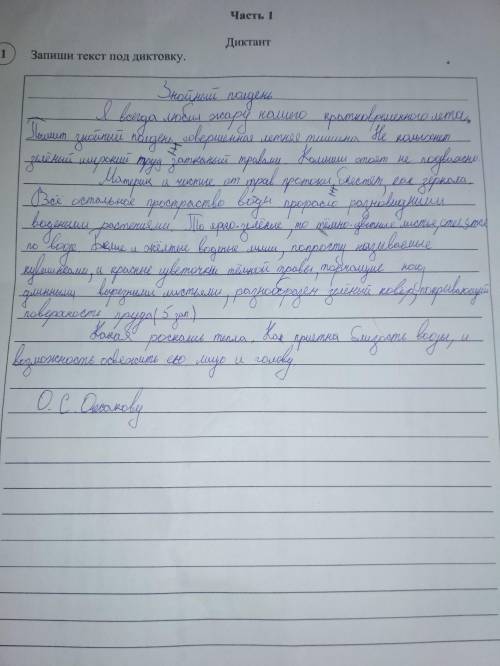 Часть 1
Диктант
1 Запиши текст под диктовку.
Знойный полдень
Я всегда любил жару нашего кратковременного лета.
Пышит знойный полдень, совершенная летняя тишина Не колыхнет
зелёний широкий пруд, затканый травами. Камыши стоят не подвижно
Материк и чистые от трав протоки блестят, как зеркала.
Всё остальное простраство воды проросло разновидними
водяными растениями. То ярко-зелёные, то тёмно-цветние листья, стелятся
по воде Белые и жёлтые водяные лилии, попросту называемые
кувшинками, и красные цветочки тёмной травы, торчащие над
длинными вырезними листьями, разнообразен зелёний ковер, покривающий
поверхость пруда (5 зап)
Какая роскошь тепла. Как приятна близость воды, и
возможность освежить ею лицо и голову
О. С. Оксакову